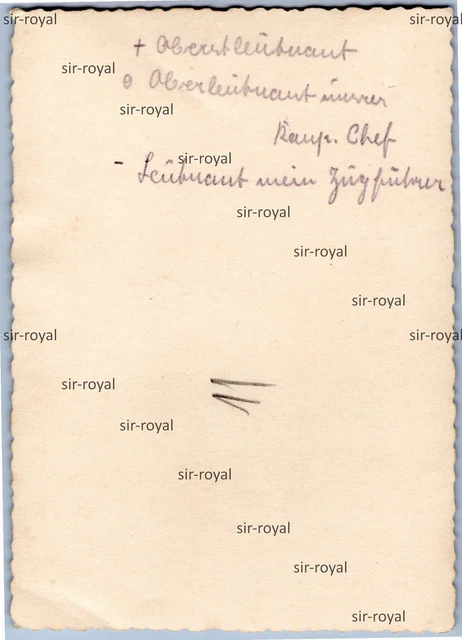 sir-royal sir-royal
+ Oberstleutnant
sir-royal
o Oberleutnant unser
sir-royal
Komp. Chef
sir-royal
- Leutnant mein Zugführer
sir-royal
sir-royal
sir-royal
sir-royal sir-royal
sir-royal
sir-royal
sir-royal
sir-royal
sir-royal
sir-royal